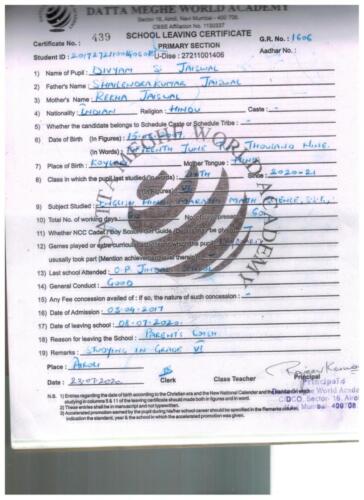 DATTA MEGHE WORLD ACADEMY
Sector 16, Airoli, Navi Mumbai - 400 708.
CBSE Affiliation No. 1130337
SCHOOL LEAVING CERTIFICATE
Certificate No. : 439 G.R. No.: 1606
PRIMARY SECTION
Student ID : U-Dise : 27211001406 Aadhar No.:
1) Name of Pupil : DIVYAM S JAISWAL
2) Father's Name : SHAILENDRAKUMAR JAISWAL
3) Mother's Name : REKHA JAISWAL
4) Nationality : INDIAN Religion : HINDU Caste : -
5) Whether the candidate belongs to Schedule Caste or Schedule Tribe : -
6) Date of Birth (In Figures) :
(In Words) : FIFTEENTH JUNE THOUSAND NINE
7) Place of Birth : Mother Tongue :
8) Class in which the pupil last studied (In words) : 2020-21
(In figures) : VI
9) Subject Studied : ENGLISH HINDI MARATHI MATH SCIENCE
10) Total No. of working days
11) Whether NCC Cadet / Boy Scout / Girl Guide
12) Games played or extra curricular the pupil
usually took part (Mention achievement level therein)
13) Last school Attended : O.P. JINDAL SCHOOL
14) General Conduct : GOOD
15) Any Fee concession availed of : if so, the nature of such concession : -
16) Date of Admission : 03-04-2017
17) Date of leaving school : 08-07-2020
18) Reason for leaving the School : PARENT'S WISH
19) Remarks : STUDYING IN GRADE VI
Place : AIROLI
Date : 23/07/2020 Clerk Class Teacher Principal
Principal
Datta Meghe World Academy
CIDCO, Sector- 16, Airoli
Navi Mumbai- 400708
N.B. 1) Entries regarding the date of birth according to the Christian era and the New National Calendar and
studying in columns 5 & 11 of the leaving certificate should be made both in figures and in word.
2) These entries shall be in manuscript and not typewritten.
3) Accelerated promotion earned by the pupil during his/her school career should be specified in the Remarks
indication the standard, year & the school in which the accelerated promotion was given.